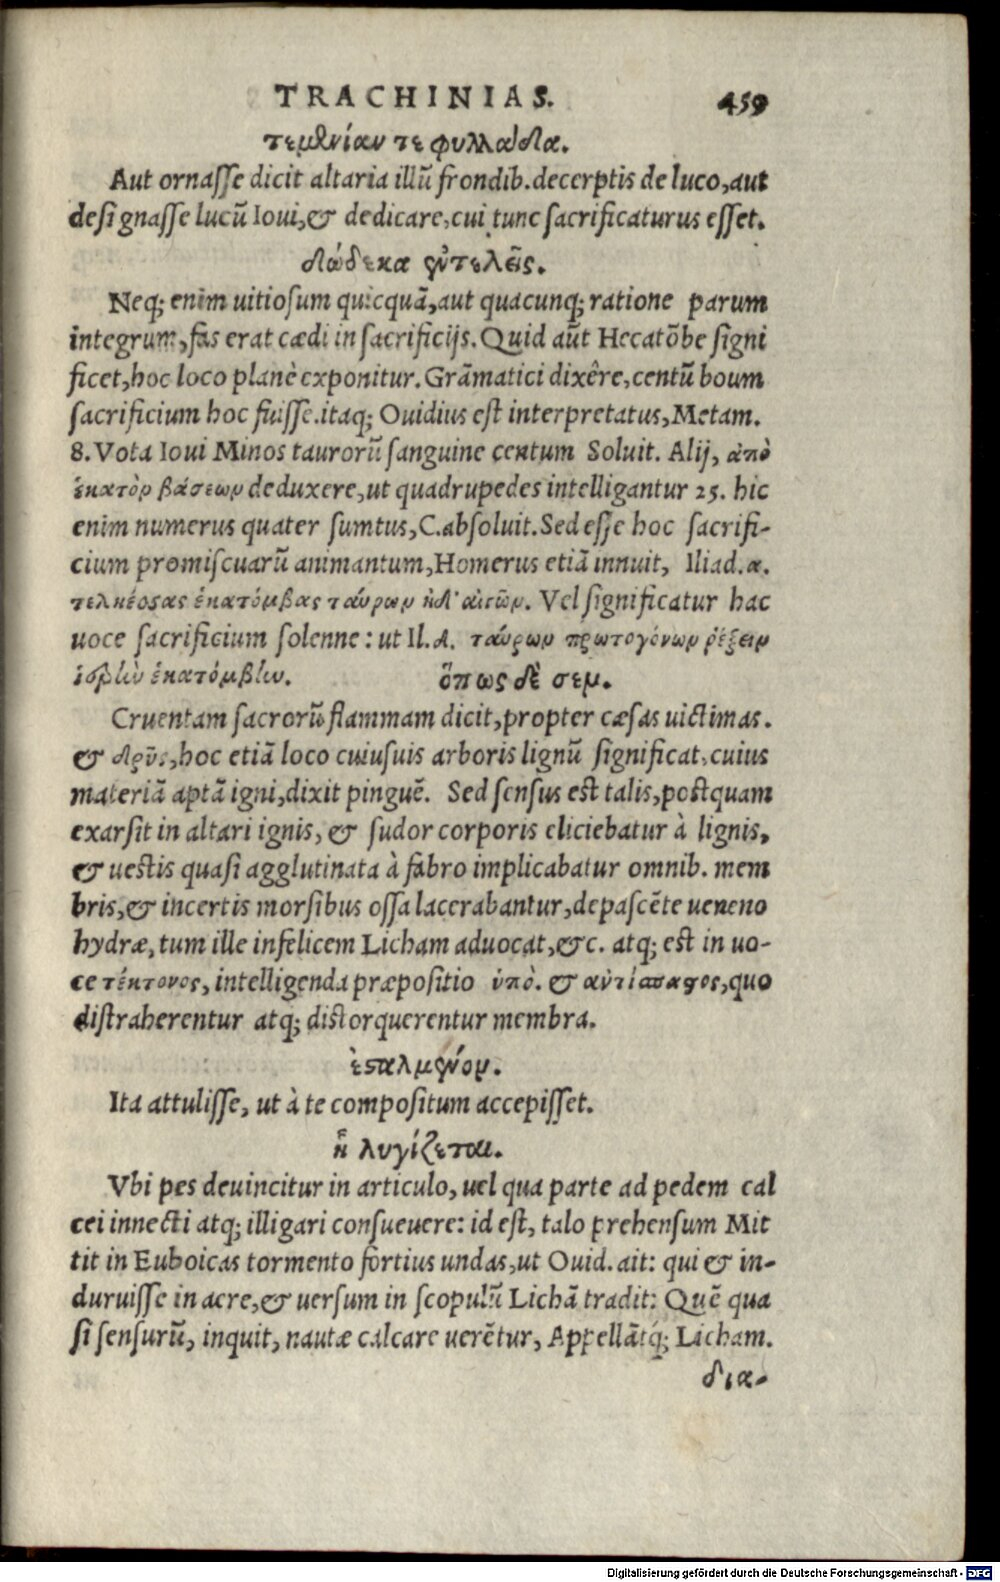 TRACHINIAS. 459
τεμενίαν τε φυλλάδα.
Aut ornasse dicit altaria illũ frondib. decerptis de luco, aut
designasse lucũ Ioui, & dedicare, cui tunc sacrificaturus esset.
δώδεκα ἐντελεῖς.
Neq; enim uitiosum quicquã, aut quacunq; ratione parum
integrum, fas erat cædi in sacrificijs. Quid aũt Hecatõbe signi
ficet, hoc loco planè exponitur. Grãmatici dixêre, centũ boum
sacrificium hoc fuisse. itaq; Ouidius est interpretatus, Metam.
8. Vota Ioui Minos taurorũ sanguine centum Soluit. Alij, ἀπὸ
ἑκατὸν βάσεων deduxere, ut quadrupedes intelligantur 25. hic
enim numerus quater sumtus, C. absoluit. Sed esse hoc sacrifi-
cium promiscuarũ animantum, Homerus etiã innuit, Iliad. α.
τεληέοσας ἑκατόμβας ταύρων ἠδ' αἰγῶν. Vel significatur hac
uoce sacrificium solenne: ut Il. δ. ταύρων πρωτογόνων ῥέξειν
ἱερὴν ἑκατόμβην. ὅπως δὲ σεμ.
Cruentam sacrorũ flammam dicit, propter cæsas uictimas.
& δρῦς, hoc etiã loco cuiusuis arboris lignũ significat, cuius
materiã aptã igni, dixit pinguẽ. Sed sensus est talis, postquam
exarsit in altari ignis, & sudor corporis eliciebatur à lignis,
& uestis quasi agglutinata à fabro implicabatur omnib. mem
bris, & incertis morsibus ossa lacerabantur, depascẽte ueneno
hydræ, tum ille infelicem Licham aduocat, &c. atq; est in uo-
ce τέκτονος, intelligenda præpositio ὑπὸ. & ἀντίσπαστος, quo
distraherentur atq; distorquerentur membra.
ἐσταλμένον.
Ita attulisse, ut à te compositum accepisset.
ᾗ λυγίζεται.
Vbi pes deuincitur in articulo, uel qua parte ad pedem cal
cei innecti atq; illigari consueuere: id est, talo prehensum Mit
tit in Euboicas tormento fortius undas, ut Ouid. ait: qui & in-
duruisse in aere, & uersum in scopulũ Lichã tradit: Quẽ qua
si sensurũ, inquit, nautæ calcare uerẽtur, Appellãtq́; Licham.
δια-
Digitalisierung gefördert durch die Deutsche Forschungsgemeinschaft - DFG